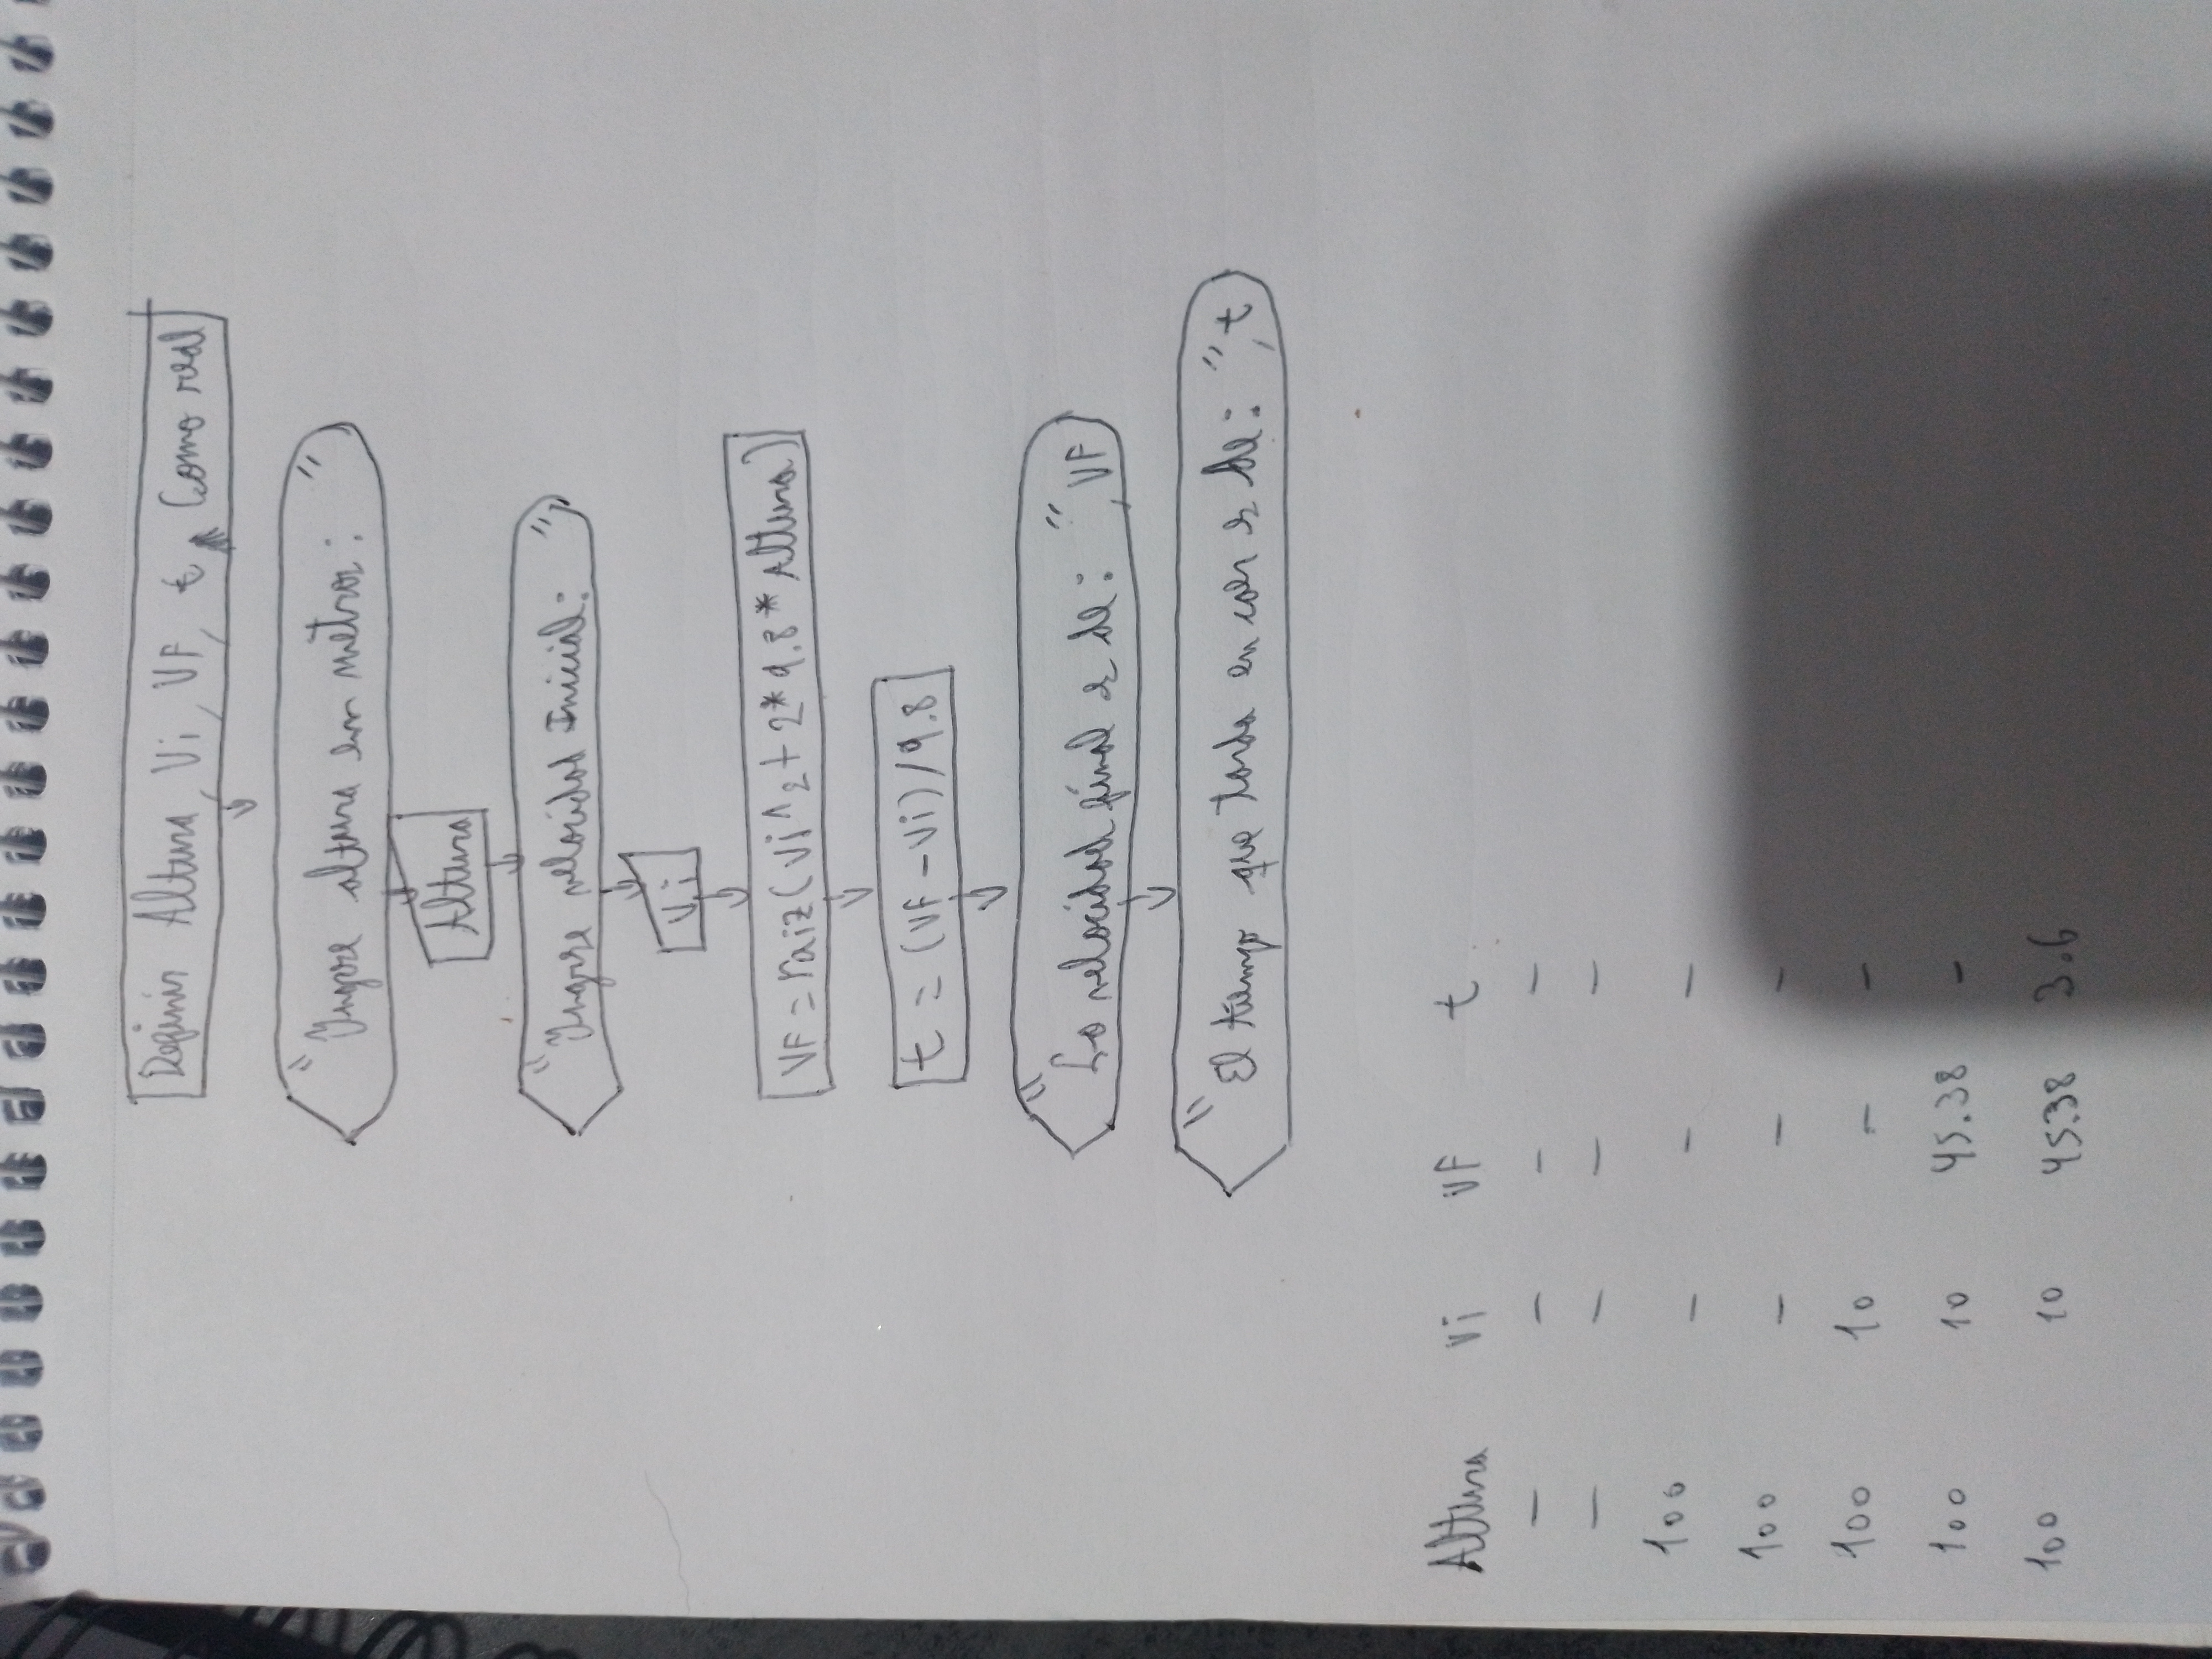 Definir Altura, Vi, VF, t Como real
"Ingrse altura em metros: "
Altura
"Ingrse velocidad Inicial: "
Vi
VF = raiz(Vi^2 + 2*9.8*Altura)
t = (VF - Vi) / 9.8
"La velocidad final es de: ", VF
"El tiempo que tarda en caer es de: ", t
Altura Vi VF t
- - - -
- - - -
100 - - -
100 - - -
100 10 - -
100 10 45.38 -
100 10 45.38 3.6